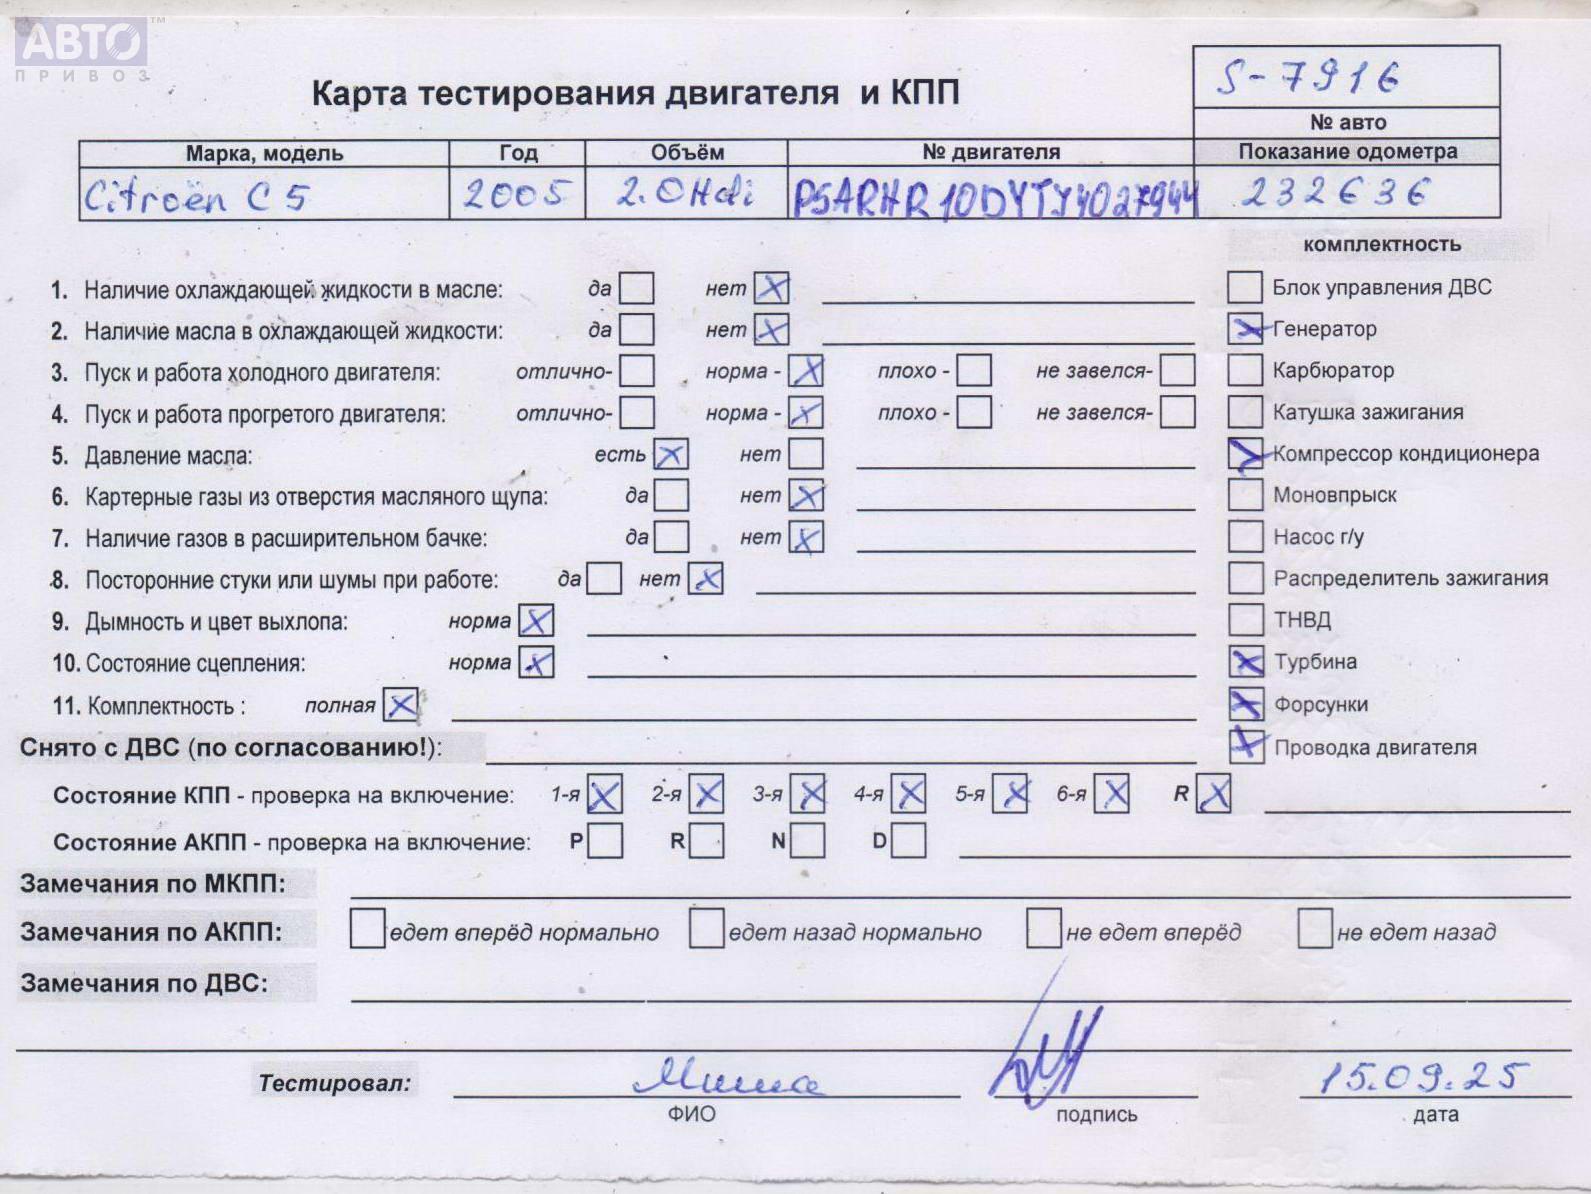 АВТО™
ПРИВОЗ
Карта тестирования двигателя и КПП
S-7916
№ авто
Марка, модель Год Объём № двигателя Показание одометра
Citroën C5 2005 2.0Hdi PSARHR10DYTJ4027944 232636
комплектность
1. Наличие охлаждающей жидкости в масле: да нет X Блок управления ДВС
2. Наличие масла в охлаждающей жидкости: да нет X X Генератор
3. Пуск и работа холодного двигателя: отлично- норма - X плохо - не завелся- Карбюратор
4. Пуск и работа прогретого двигателя: отлично- норма - X плохо - не завелся- Катушка зажигания
5. Давление масла: есть X нет X Компрессор кондиционера
6. Картерные газы из отверстия масляного щупа: да нет X Моновпрыск
7. Наличие газов в расширительном бачке: да нет X Насос г/у
8. Посторонние стуки или шумы при работе: да нет X Распределитель зажигания
9. Дымность и цвет выхлопа: норма X ТНВД
10. Состояние сцепления: норма X X Турбина
11. Комплектность : полная X X Форсунки
Снято с ДВС (по согласованию!): X Проводка двигателя
Состояние КПП - проверка на включение: 1-я X 2-я X 3-я X 4-я X 5-я X 6-я X R X
Состояние АКПП - проверка на включение: P R N D
Замечания по МКПП:
Замечания по АКПП: едет вперёд нормально едет назад нормально не едет вперёд не едет назад
Замечания по ДВС:
Тестировал: Миша 15.09.25
ФИО подпись дата